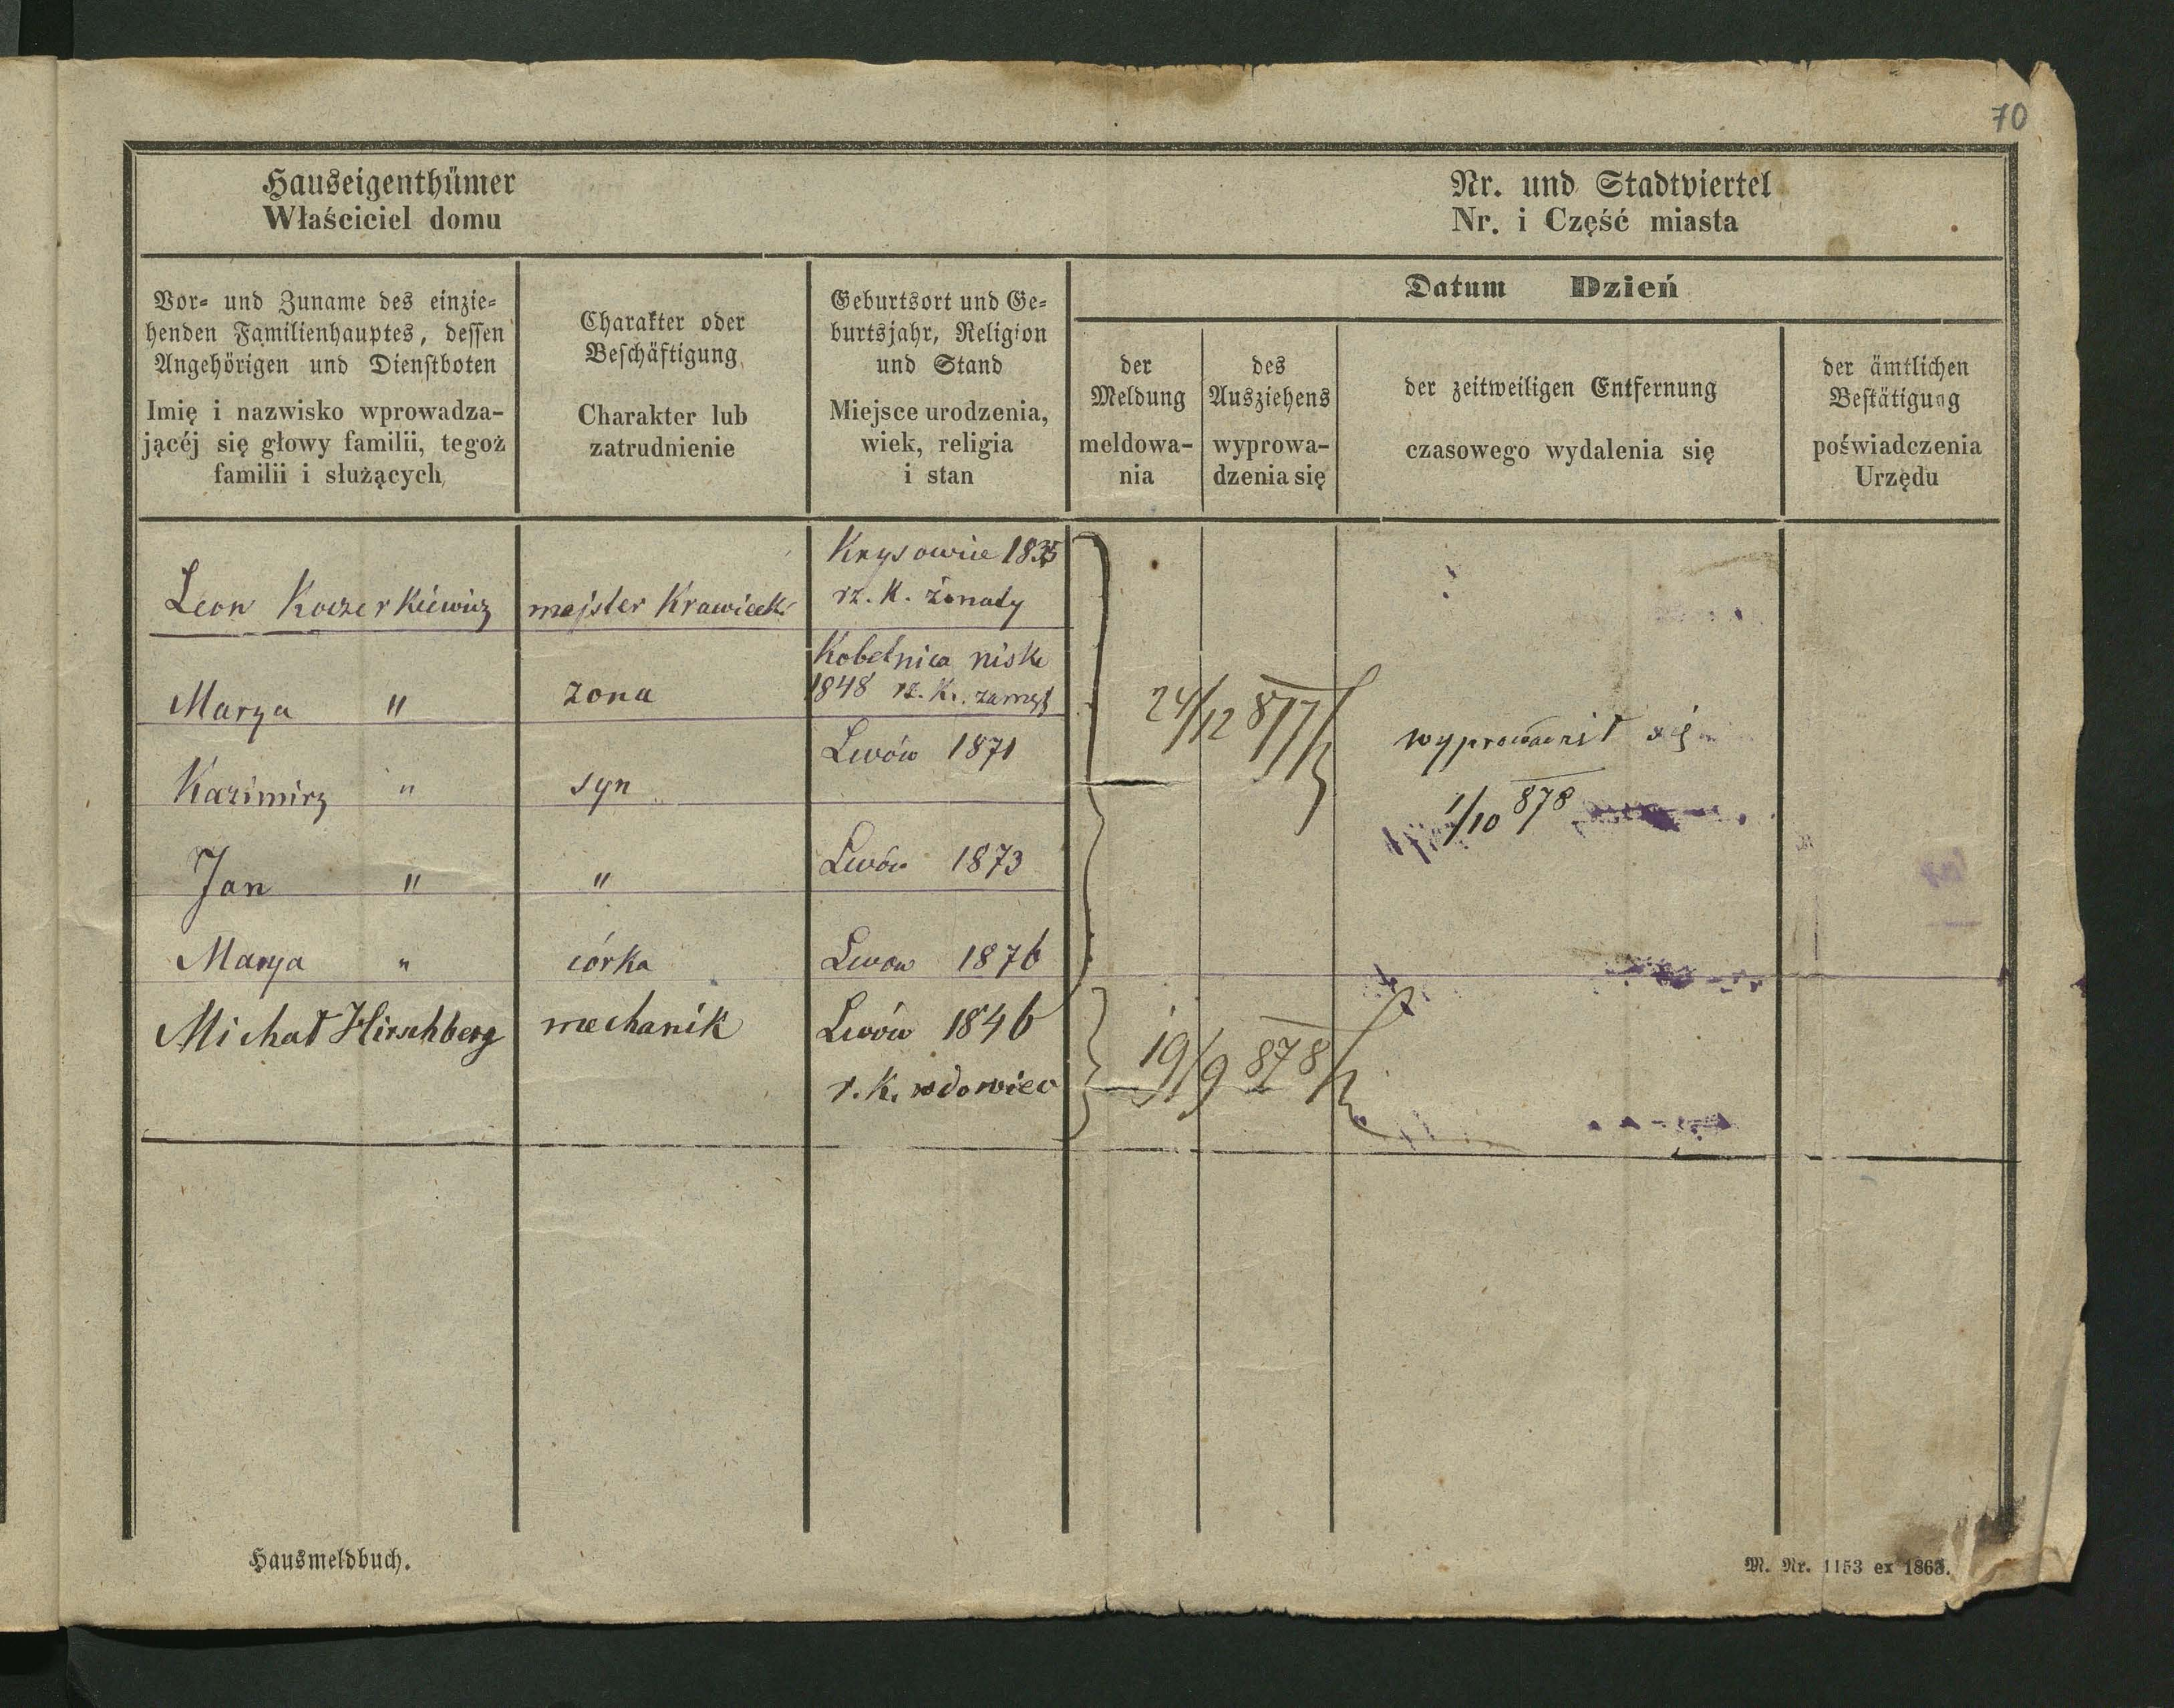 70
Hauseigenthümer
Właściciel domu
Nr. und Stadtviertel
Nr. i Część miasta
Vor- und Zuname des einzie-
henden Familienhauptes, dessen
Angehörigen und Dienstboten
Imię i nazwisko wprowadza-
jącéj się głowy familii, tegoż
familii i służących
Charakter oder
Beschäftigung
Charakter lub
zatrudnienie
Geburtsort und Ge-
burtsjahr, Religion
und Stand
Miejsce urodzenia,
wiek, religia
i stan
Datum Dzień
der
Meldung
meldowa-
nia
des
Ausziehens
wyprowa-
dzenia się
der zeitweiligen Entfernung
czasowego wydalenia się
der ämtlichen
Bestätigung
poświadczenia
Urzędu
Krysowice 1835
Leon Koczerkiewicz majster Krawiecki rz. K. żonaty
Kobelnica niska
Marya " żona 1848 rz. K. zamęż
24/12 877
wyprowadził się
Lwów 1871
Kazimirz " syn
1/10 878
Jan " " Lwów 1873
Marya " córka Lwow 1876
Michał Hirschberg mechanik Lwów 1846
19/9 878
r. K. wdowiec
Hausmeldbuch.
M. Nr. 1153 ex 1868.